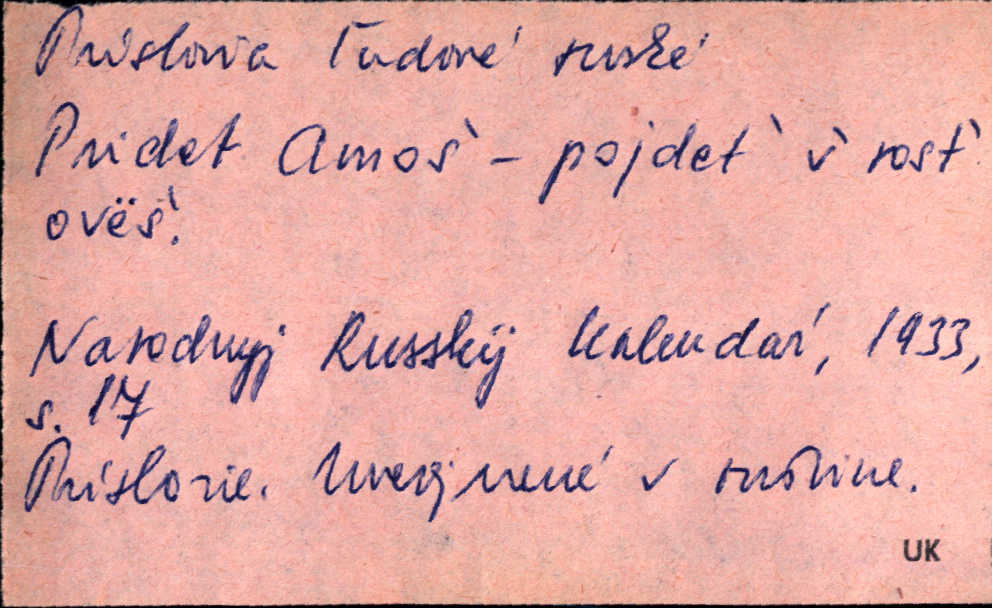 Príslovia ľudové ruské
Pridet Amos̀ – pojdet̀ v̀ rost̀
ovës̀.
Narodnyj Russkÿ Kalendaŕ, 1933,
s. 17
Príslovie. Uverejnené v ruštine.
UK